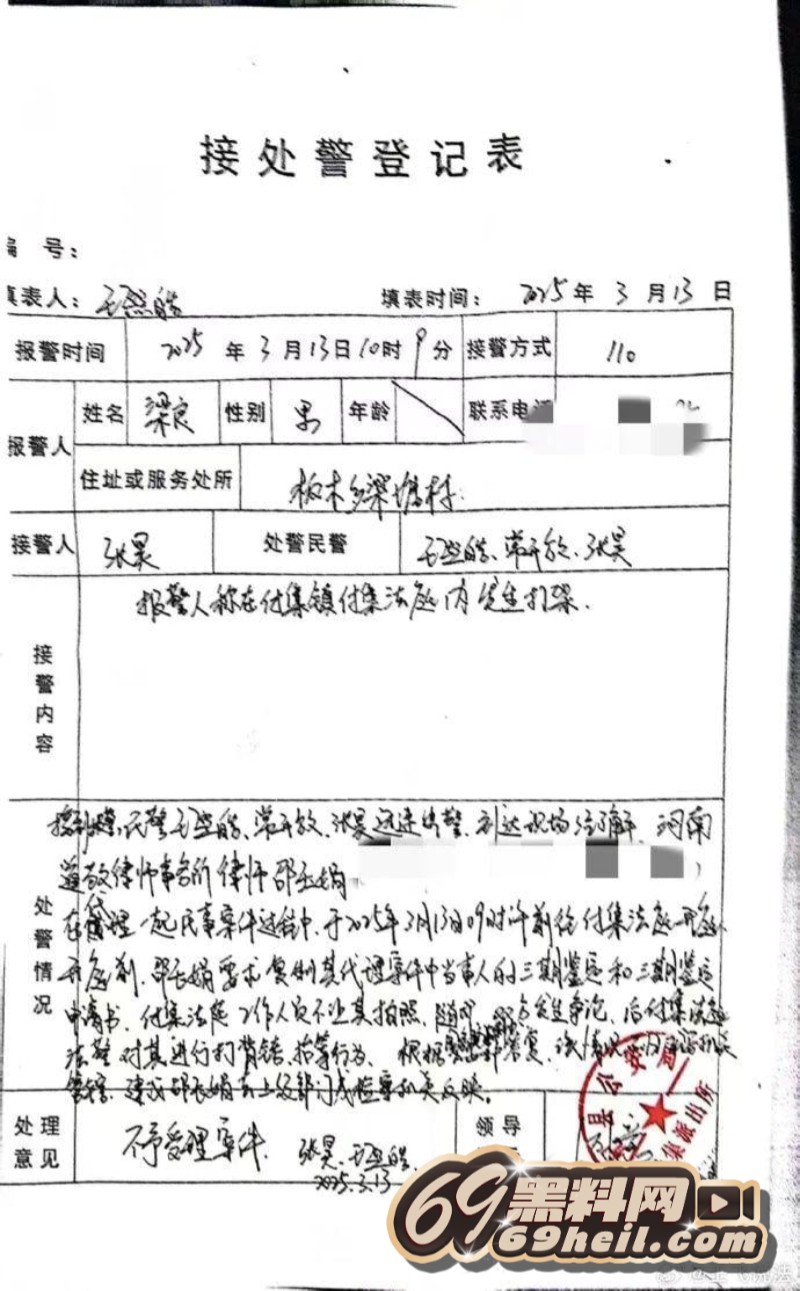 接处警登记表
编 号：
填表人： 填表时间： 2025年3月13日
报警时间 2025年3月13日10时9分 接警方式 110
报警人 姓名 梁良 性别 男 年龄 联系电话
住址或服务处所 板木乡梁塘村
接警人 张昊 处警民警 常开放、张昊
接警内容
报警人称在付集镇付集法庭内发生打架.
处警情况
民警 常开放、张昊迅速出警、到达现场经了解、河南
律师事务所律师邵
在代理一起民事案件过程中、于2025年3月13日09时许前往付集法庭开庭、
开庭前、邵 娟要求复制其代理案件中当事人的三期鉴定和三期鉴定
申请书、付集法庭工作人员不让其拍照、随后双方发生争论、后付集法庭
法警对其进行打背铐、 等行为、根据
建议邵 娟去上级部门或检察机关反映。
处理意见 不予受理案件. 张昊、
领导
2025.3.13
县公安局
镇派出所
69黑料网
69heil.com